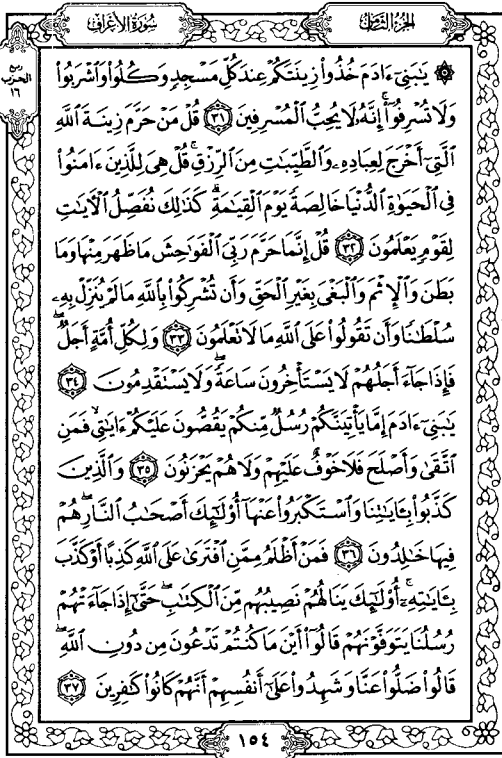 سُورَةُ الأَعْرَافِ
الجُزْءُ الثَّامِنُ
ربع
الحزب
١٦
۞ يَٰبَنِيٓ ءَادَمَ خُذُوا۟ زِينَتَكُمْ عِندَ كُلِّ مَسْجِدٍ وَكُلُوا۟ وَٱشْرَبُوا۟
وَلَا تُسْرِفُوٓا۟ۚ إِنَّهُۥ لَا يُحِبُّ ٱلْمُسْرِفِينَ ٣١ قُلْ مَنْ حَرَّمَ زِينَةَ ٱللَّهِ
ٱلَّتِيٓ أَخْرَجَ لِعِبَادِهِۦ وَٱلطَّيِّبَٰتِ مِنَ ٱلرِّزْقِۚ قُلْ هِيَ لِلَّذِينَ ءَامَنُوا۟
فِي ٱلْحَيَوٰةِ ٱلدُّنْيَا خَالِصَةً يَوْمَ ٱلْقِيَٰمَةِۗ كَذَٰلِكَ نُفَصِّلُ ٱلْءَايَٰتِ
لِقَوْمٍ يَعْلَمُونَ ٣٢ قُلْ إِنَّمَا حَرَّمَ رَبِّيَ ٱلْفَوَٰحِشَ مَا ظَهَرَ مِنْهَا وَمَا
بَطَنَ وَٱلْإِثْمَ وَٱلْبَغْيَ بِغَيْرِ ٱلْحَقِّ وَأَن تُشْرِكُوا۟ بِٱللَّهِ مَا لَمْ يُنَزِّلْ بِهِۦ
سُلْطَٰنًا وَأَن تَقُولُوا۟ عَلَى ٱللَّهِ مَا لَا تَعْلَمُونَ ٣٣ وَلِكُلِّ أُمَّةٍ أَجَلٌۖ
فَإِذَا جَآءَ أَجَلُهُمْ لَا يَسْتَأْخِرُونَ سَاعَةًۖ وَلَا يَسْتَقْدِمُونَ ٣٤
يَٰبَنِيٓ ءَادَمَ إِمَّا يَأْتِيَنَّكُمْ رُسُلٌ مِّنكُمْ يَقُصُّونَ عَلَيْكُمْ ءَايَٰتِيۙ فَمَنِ
ٱتَّقَىٰ وَأَصْلَحَ فَلَا خَوْفٌ عَلَيْهِمْ وَلَا هُمْ يَحْزَنُونَ ٣٥ وَٱلَّذِينَ
كَذَّبُوا۟ بِـَٔايَٰتِنَا وَٱسْتَكْبَرُوا۟ عَنْهَآ أُو۟لَٰٓئِكَ أَصْحَٰبُ ٱلنَّارِۖ هُمْ
فِيهَا خَٰلِدُونَ ٣٦ فَمَنْ أَظْلَمُ مِمَّنِ ٱفْتَرَىٰ عَلَى ٱللَّهِ كَذِبًا أَوْ كَذَّبَ
بِـَٔايَٰتِهِۦٓۚ أُو۟لَٰٓئِكَ يَنَالُهُمْ نَصِيبُهُم مِّنَ ٱلْكِتَٰبِۖ حَتَّىٰٓ إِذَا جَآءَتْهُمْ
رُسُلُنَا يَتَوَفَّوْنَهُمْ قَالُوٓا۟ أَيْنَ مَا كُنتُمْ تَدْعُونَ مِن دُونِ ٱللَّهِۖ
قَالُوا۟ ضَلُّوا۟ عَنَّا وَشَهِدُوا۟ عَلَىٰٓ أَنفُسِهِمْ أَنَّهُمْ كَانُوا۟ كَٰفِرِينَ ٣٧
١٥٤